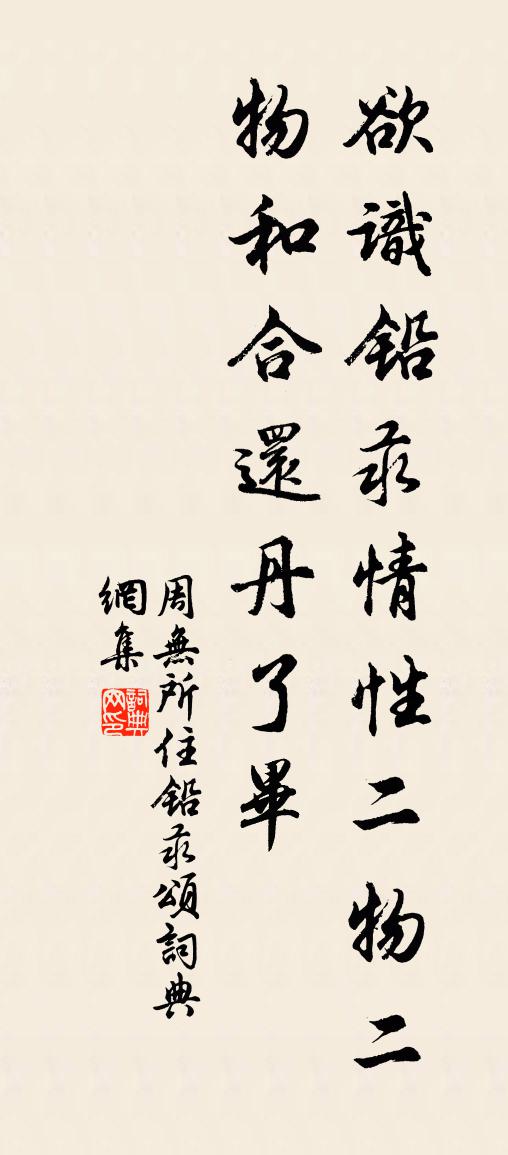 欲識鉛汞情性二物二
物和合還丹了畢
周無所住鉛汞頌詞典
網集
詞典
网印